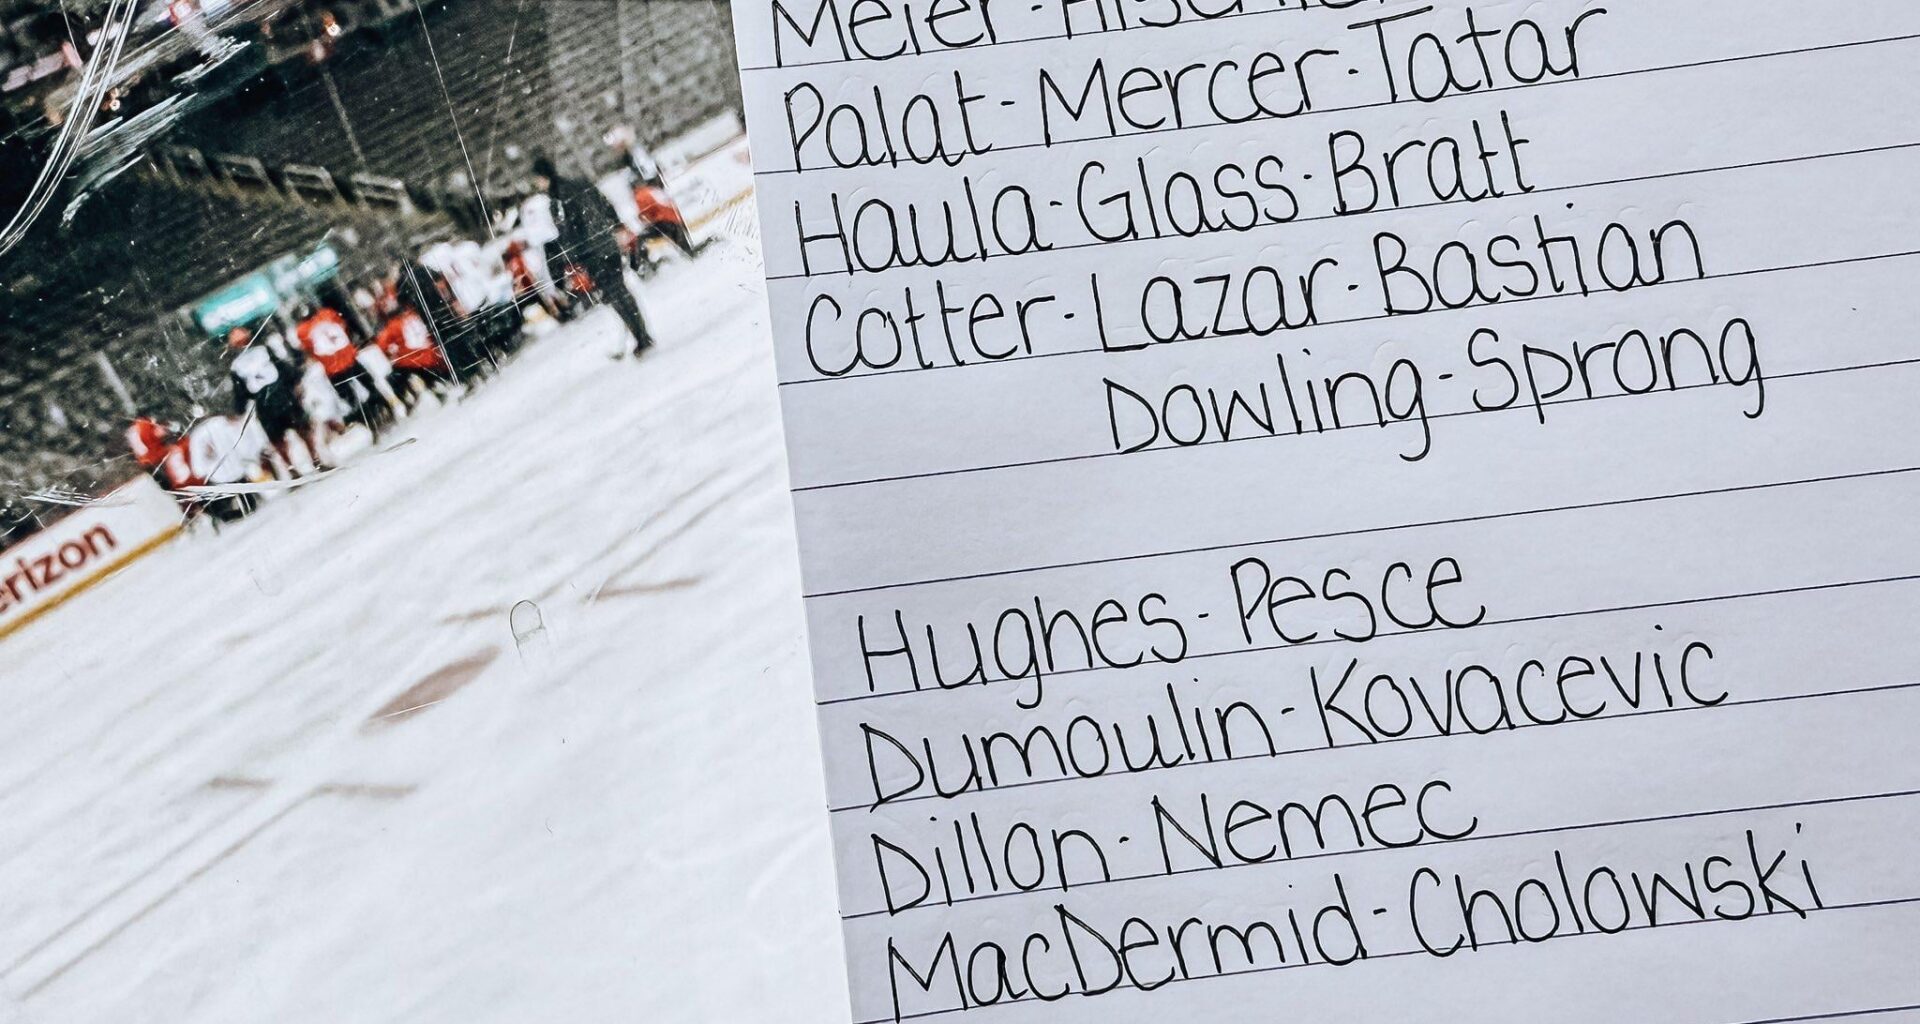 Meier-
Palat-Mercer-Tatar
Haula-Glass-Bratt
Cotter-Lazar-Bastian
Dowling-Sprong
Hughes-Pesce
Dumoulin-Kovacevic
Dillon-Nemec
MacDermid-Cholowski
erizon